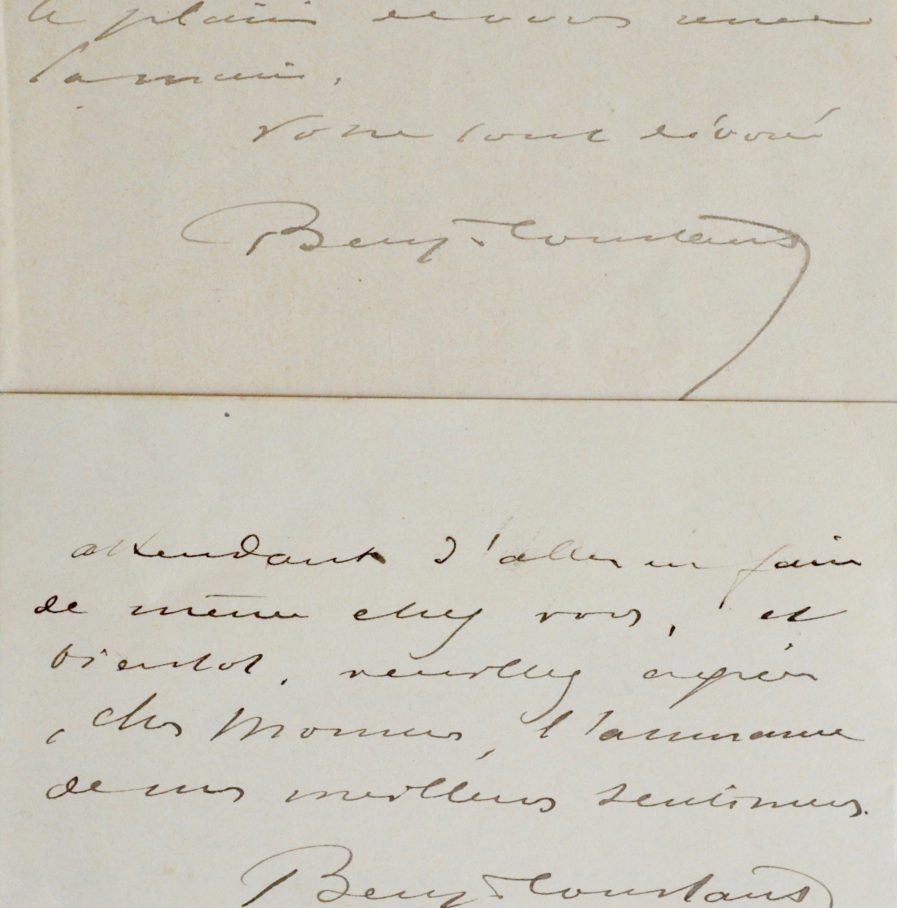 le plaisir de vous serrer
la main.
Votre tout dévoué
Benj-Constant
attendant d'aller en faire
de même chez vous, et
bientôt, veuillez agréer
, cher Monsieur, l'assurance
de mes meilleurs sentiments.
Benj-Constant